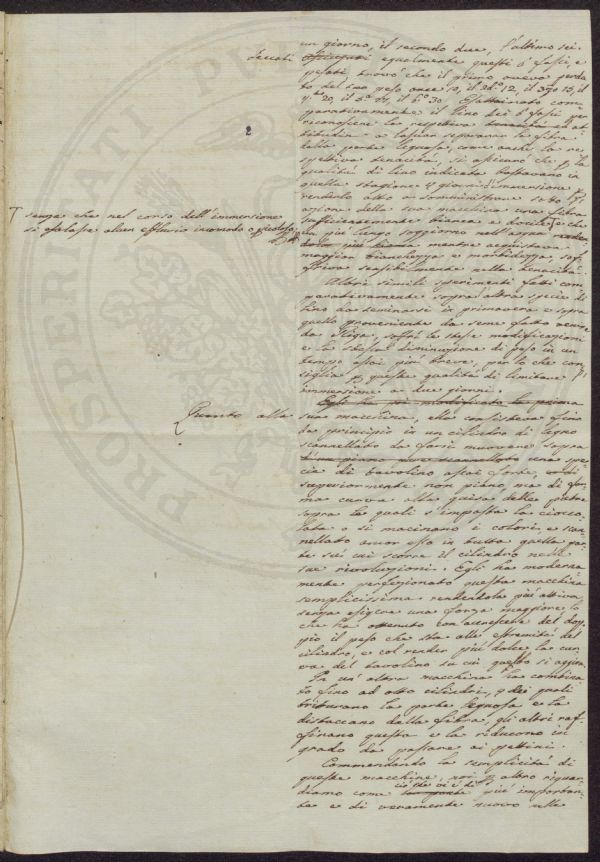 un giorno, il secondo due, l'ultimo sei.
seccati egualmente questi 6 fasci, e
pesati trovò che il primo aveva perdu-
to del suo peso once 10, il 2do 12, il 3zo 15, il
4to 20, il 5to, il 6to 30. Esaminato com-
parativamente il lino dei 6 fasci per
riconoscere la respettiva at-
titudine a lasciar separare la fibra
dalla parte legnosa, come anche la re-
spettiva tenacità, si assicurò che per la
qualità di lino indicata bastavano in
quella stagione 4 giorni d'immersione per
renderlo atto a somministrare sotto l'
azione della sua macchina una fibra
sufficientemente bianca e docile, e che
un più lungo soggiorno nell'acqua
mentre acquistava
maggior bianchezza e morbidezza, sof-
friva sensibilmente nella tenacità.
senza che nel corso dell'immersione
si esalasse alcun effluvio incomodo o pericoloso
Altri simili sperimenti fatti com-
parativamente sopra altra specie di
lino da seminarsi in primavera e sopra
quello proveniente da seme fatto venire
da Riga, soffrì le stesse modificazioni
e la stessa diminuzione di peso in un
tempo assai più breve, per lo che con-
siglia per queste qualità di limitare l'
immersione a due giorni.
Egli ha poi modificato la prima
Quanto alla sua macchina, ella consisteva fino
da principio in un cilindro di legno
scannellato da farsi muovere sopra
una spe-
cie di tavolino assai forte,
superiormente non piano, ma di for-
ma curva alla guisa delle pietre
sopra le quali s'impasta la ciocco-
lata o si macinano i colori, e scan-
nellato ancor esso in tutta quella par-
te su cui scorre il cilindro nelle
sue rivoluzioni. Egli ha moderna-
mente perfezionato questa macchina
semplicissima rendendola più attiva,
senza esigere una forza maggiore, lo
che ha ottenuto con accrescere del dop-
pio il peso che sta alle estremità del
cilindro, e col render più dolce la cur-
va del tavolino su cui questo si aggira.
In un'altra macchina ha combina-
to fino ad otto cilindri, dei quali
triturano la parte legnosa e la
distaccano dalla fibra, gli altri raf-
finano questa e la riducono in
grado da passare ai pettini.
Commendando la semplicità di
queste macchine, noi per altro riguar-
diamo come ciò che vi è di più importan-
te e di veramente nuovo nelle